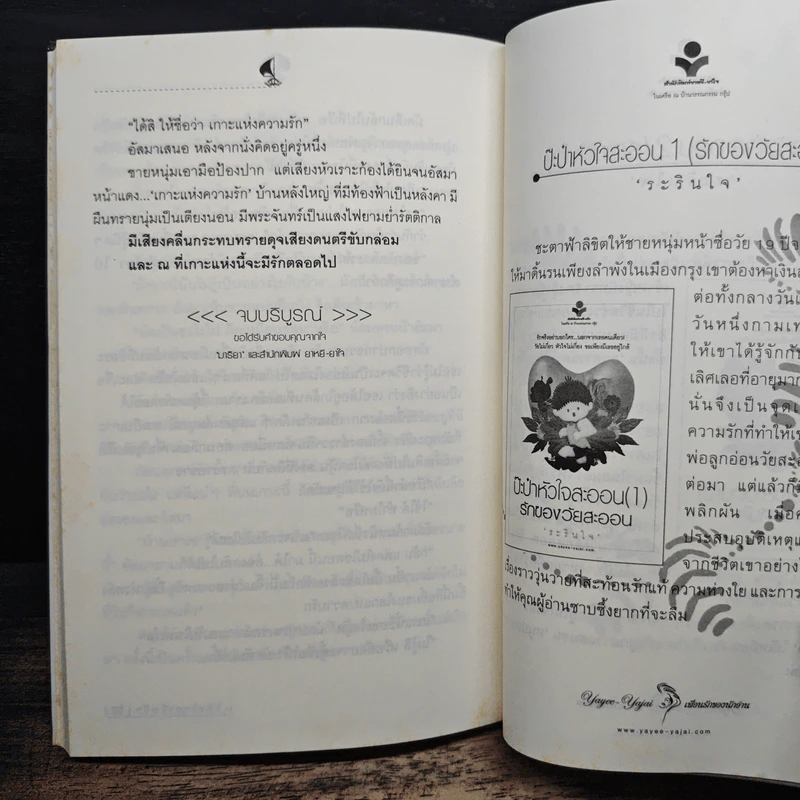 "ได้สิ ให้ชื่อว่า เกาะแห่งความรัก"
อัสมาเสนอ หลังจากนั่งคิดอยู่ครู่หนึ่ง
ชายหนุ่มเอามือป้องปาก แต่เสียงหัวเราะก้องได้ยินจนอัสมา
หน้าแดง...'เกาะแห่งความรัก' บ้านหลังใหญ่ ที่มีท้องฟ้าเป็นหลังคา มี
ผืนทรายนุ่มเป็นเตียงนอน มีพระจันทร์เป็นแสงไฟยามย่ำรัตติกาล
มีเสียงคลื่นกระทบทรายดุจเสียงดนตรีขับกล่อม
และ ณ ที่เกาะแห่งนี้จะมีรักตลอดไป
<<< จบบริบูรณ์ >>>
ขอได้รับคำขอบคุณจากใจ
'มาริยา' และสำนักพิมพ์ ยาหยี-ยาใจ
สำนักพิมพ์ยาหยี-ยาใจ
ในเครือ ณ บ้านวรรณกรรม กรุ๊ป
ป๊ะป๋าหัวใจสะออน 1 (รักของวัยสะอ
'ระรินใจ'
ชะตาฟ้าลิขิตให้ชายหนุ่มหน้าซื่อวัย 19 ปีจ
ให้มาดิ้นรนเพียงลำพังในเมืองกรุง เขาต้องหาเงินส
ต่อทั้งกลางวันแ
วันหนึ่งกามเท
ให้เขาได้รู้จักกับ
เลิศเลอที่อายุมาก
นั่นจึงเป็นจุดเ
ความรักที่ทำให้เข
พ่อลูกอ่อนวัยสะอ
ต่อมา แต่แล้วก็
พลิกผัน เมื่อ
ประสบอุบัติเหตุแ
จากชีวิตเขาอย่าง
ป๊ะป๋าหัวใจสะออน(1)
รักของวัยสะออน
'ระรินใจ'
www.yayee-yajai.com
เรื่องราววุ่นวายที่สะท้อนรักแท้ ความห่วงใย และการ
ทำให้คุณผู้อ่านซาบซึ้งยากที่จะลืม
Yayee-Yajai เพื่อนรักของนักอ่าน
www.yayee-yajai.com